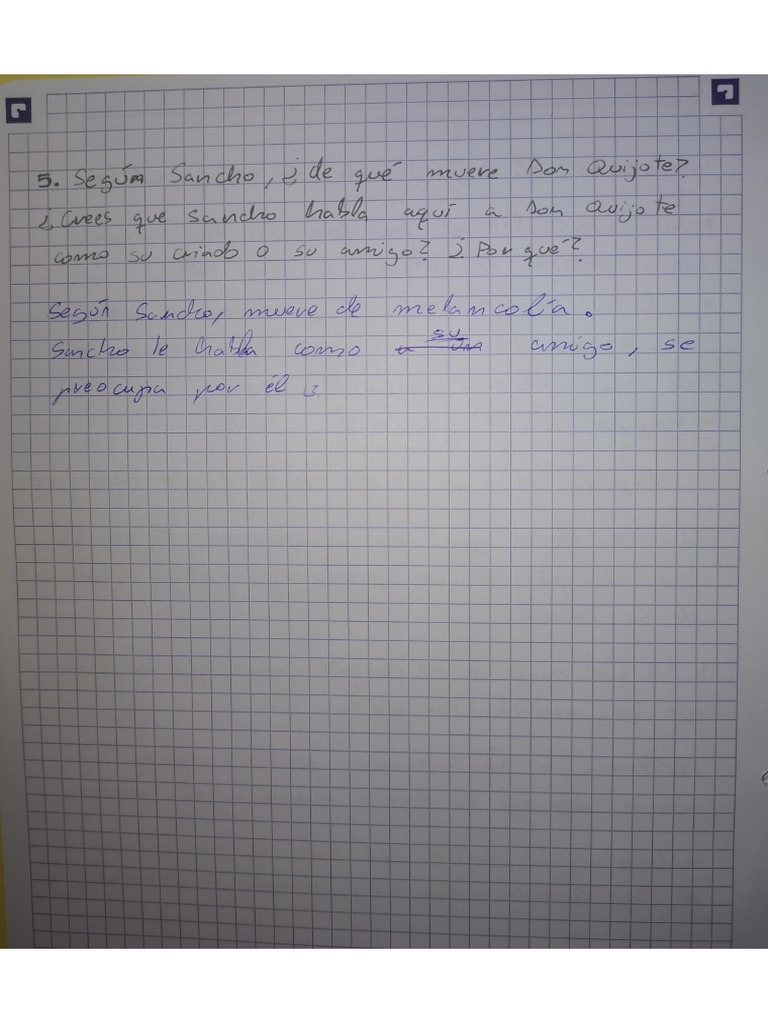 5. Según Sancho, ¿de qué muere Don Quijote?
¿Crees que Sancho habla aquí a Don Quijote
como su criado o su amigo? ¿Por qué?
Según Sancho, muere de melancolía.
Sancho le habla como su amigo, se
preocupa por él